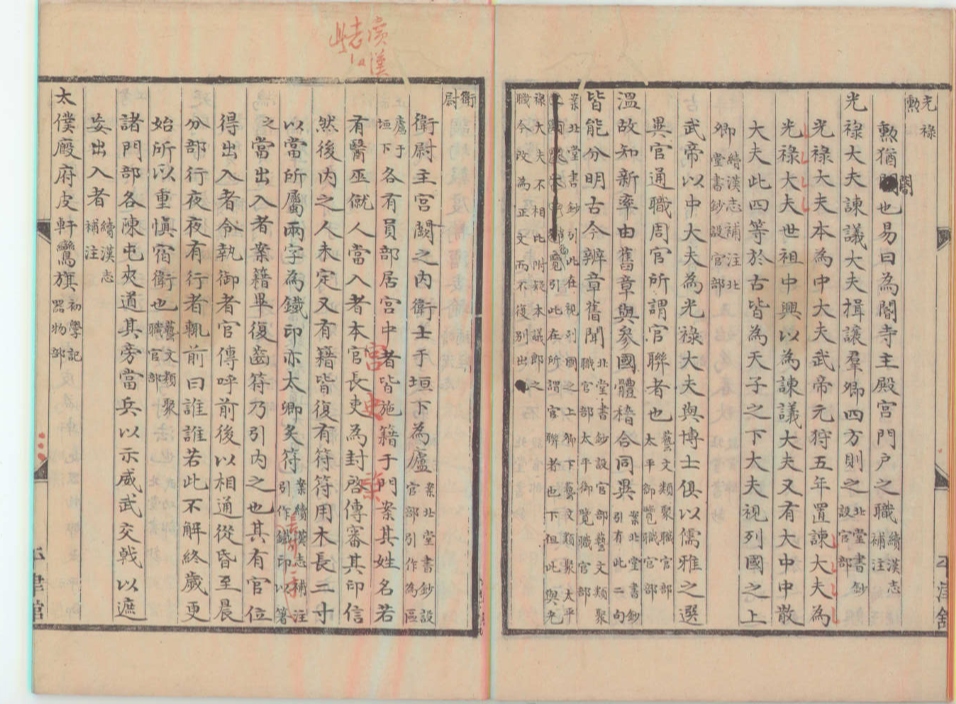 光祿
勲
勲猶閽也易曰為閽寺主殿宮門戶之職續漢志
補注
光祿大夫諫議大夫揖讓羣卿四方則之北堂書鈔
設官部
光祿大夫本為中大夫武帝元狩五年置諫大夫為
光祿大夫世祖中興以為諫議大夫又有大中中散
大夫此四等於古皆為天子之下大夫視列國之上
卿續漢志補注北
堂書鈔設官部
武帝以中大夫為光祿大夫與博士俱以儒雅之選
異官通職周官所謂官聯者也藝文類聚職官部
太平御覽職官部
溫故知新率由舊章與參國體稽合同異案北堂書鈔
引有此二句
皆能分明古今辨章舊聞北堂書鈔設官部藝文類聚
職官部太平御覽職官部
案北堂書鈔引此在視列國之上卿下藝文類聚太平
御覽引此在所謂官聯者也下但此與光
祿大夫不相比附疑本議郎之
職今改為正文而不復別出
衛
尉
衛尉主宮闕之內衛士于垣下為廬案北堂書鈔設
官部引作為區
廬于
垣下各有員部居宮中者皆施籍于門案其姓名若
有醫巫僦人當入者本官長吏為封啓傳審其印信
然後內之人未定又有籍皆復有符符用木長二寸
以當所屬兩字為鐵印亦太卿炙符案續漢志補注
引作鐵印以署
之當出入者案籍畢復齒符乃引內之也其有官位
得出入者令執御者官傳呼前後以相通從昏至晨
分部行夜夜有行者輒前曰誰誰若此不解終歲更
始所以重慎宿衛也藝文類聚
職官部
諸門部各陳屯夾道其旁當兵以示威武交戟以遮
妄出入者續漢志
補注
太僕廄府皮軒鸞旗初學記
器物部
平津館